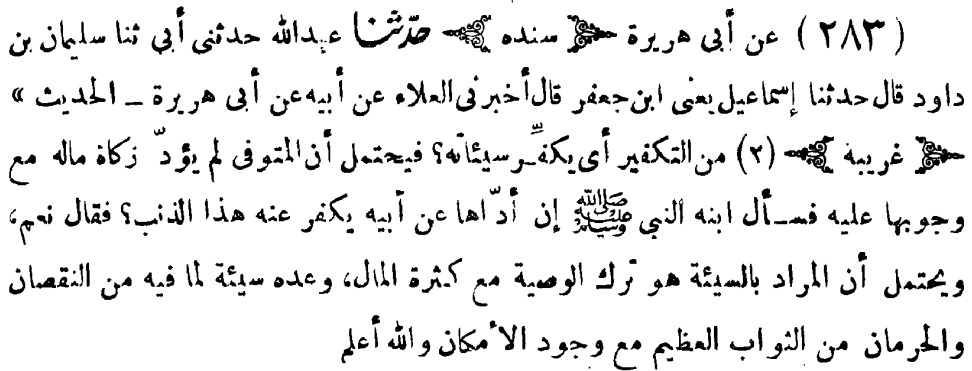 ( ٢٨٣ ) عن أبى هريرة ﴿ سنده ﴾ حدّثنا عبدالله حدثنى أبى ثنا سليمان بن
داود قال حدثنا إسماعيل يعنى ابن جعفر قال أخبرنى العلاء عن أبيه عن أبى هريرة ــ الحديث »
﴿ غريبه ﴾ (٢) من التكفير أى يكفِّر سيئاته؟ فيحتمل أن المتوفى لم يؤدّ زكاة ماله مع
وجوبها عليه فسأل ابنه النبي ﷺ إن أدّاها عن أبيه يكفر عنه هذا الذنب؟ فقال نعم،
ويحتمل أن المراد بالسيئة هو ترك الوصية مع كثرة المال، وعده سيئة لما فيه من النقصان
والحرمان من الثواب العظيم مع وجود الأمكان والله أعلم